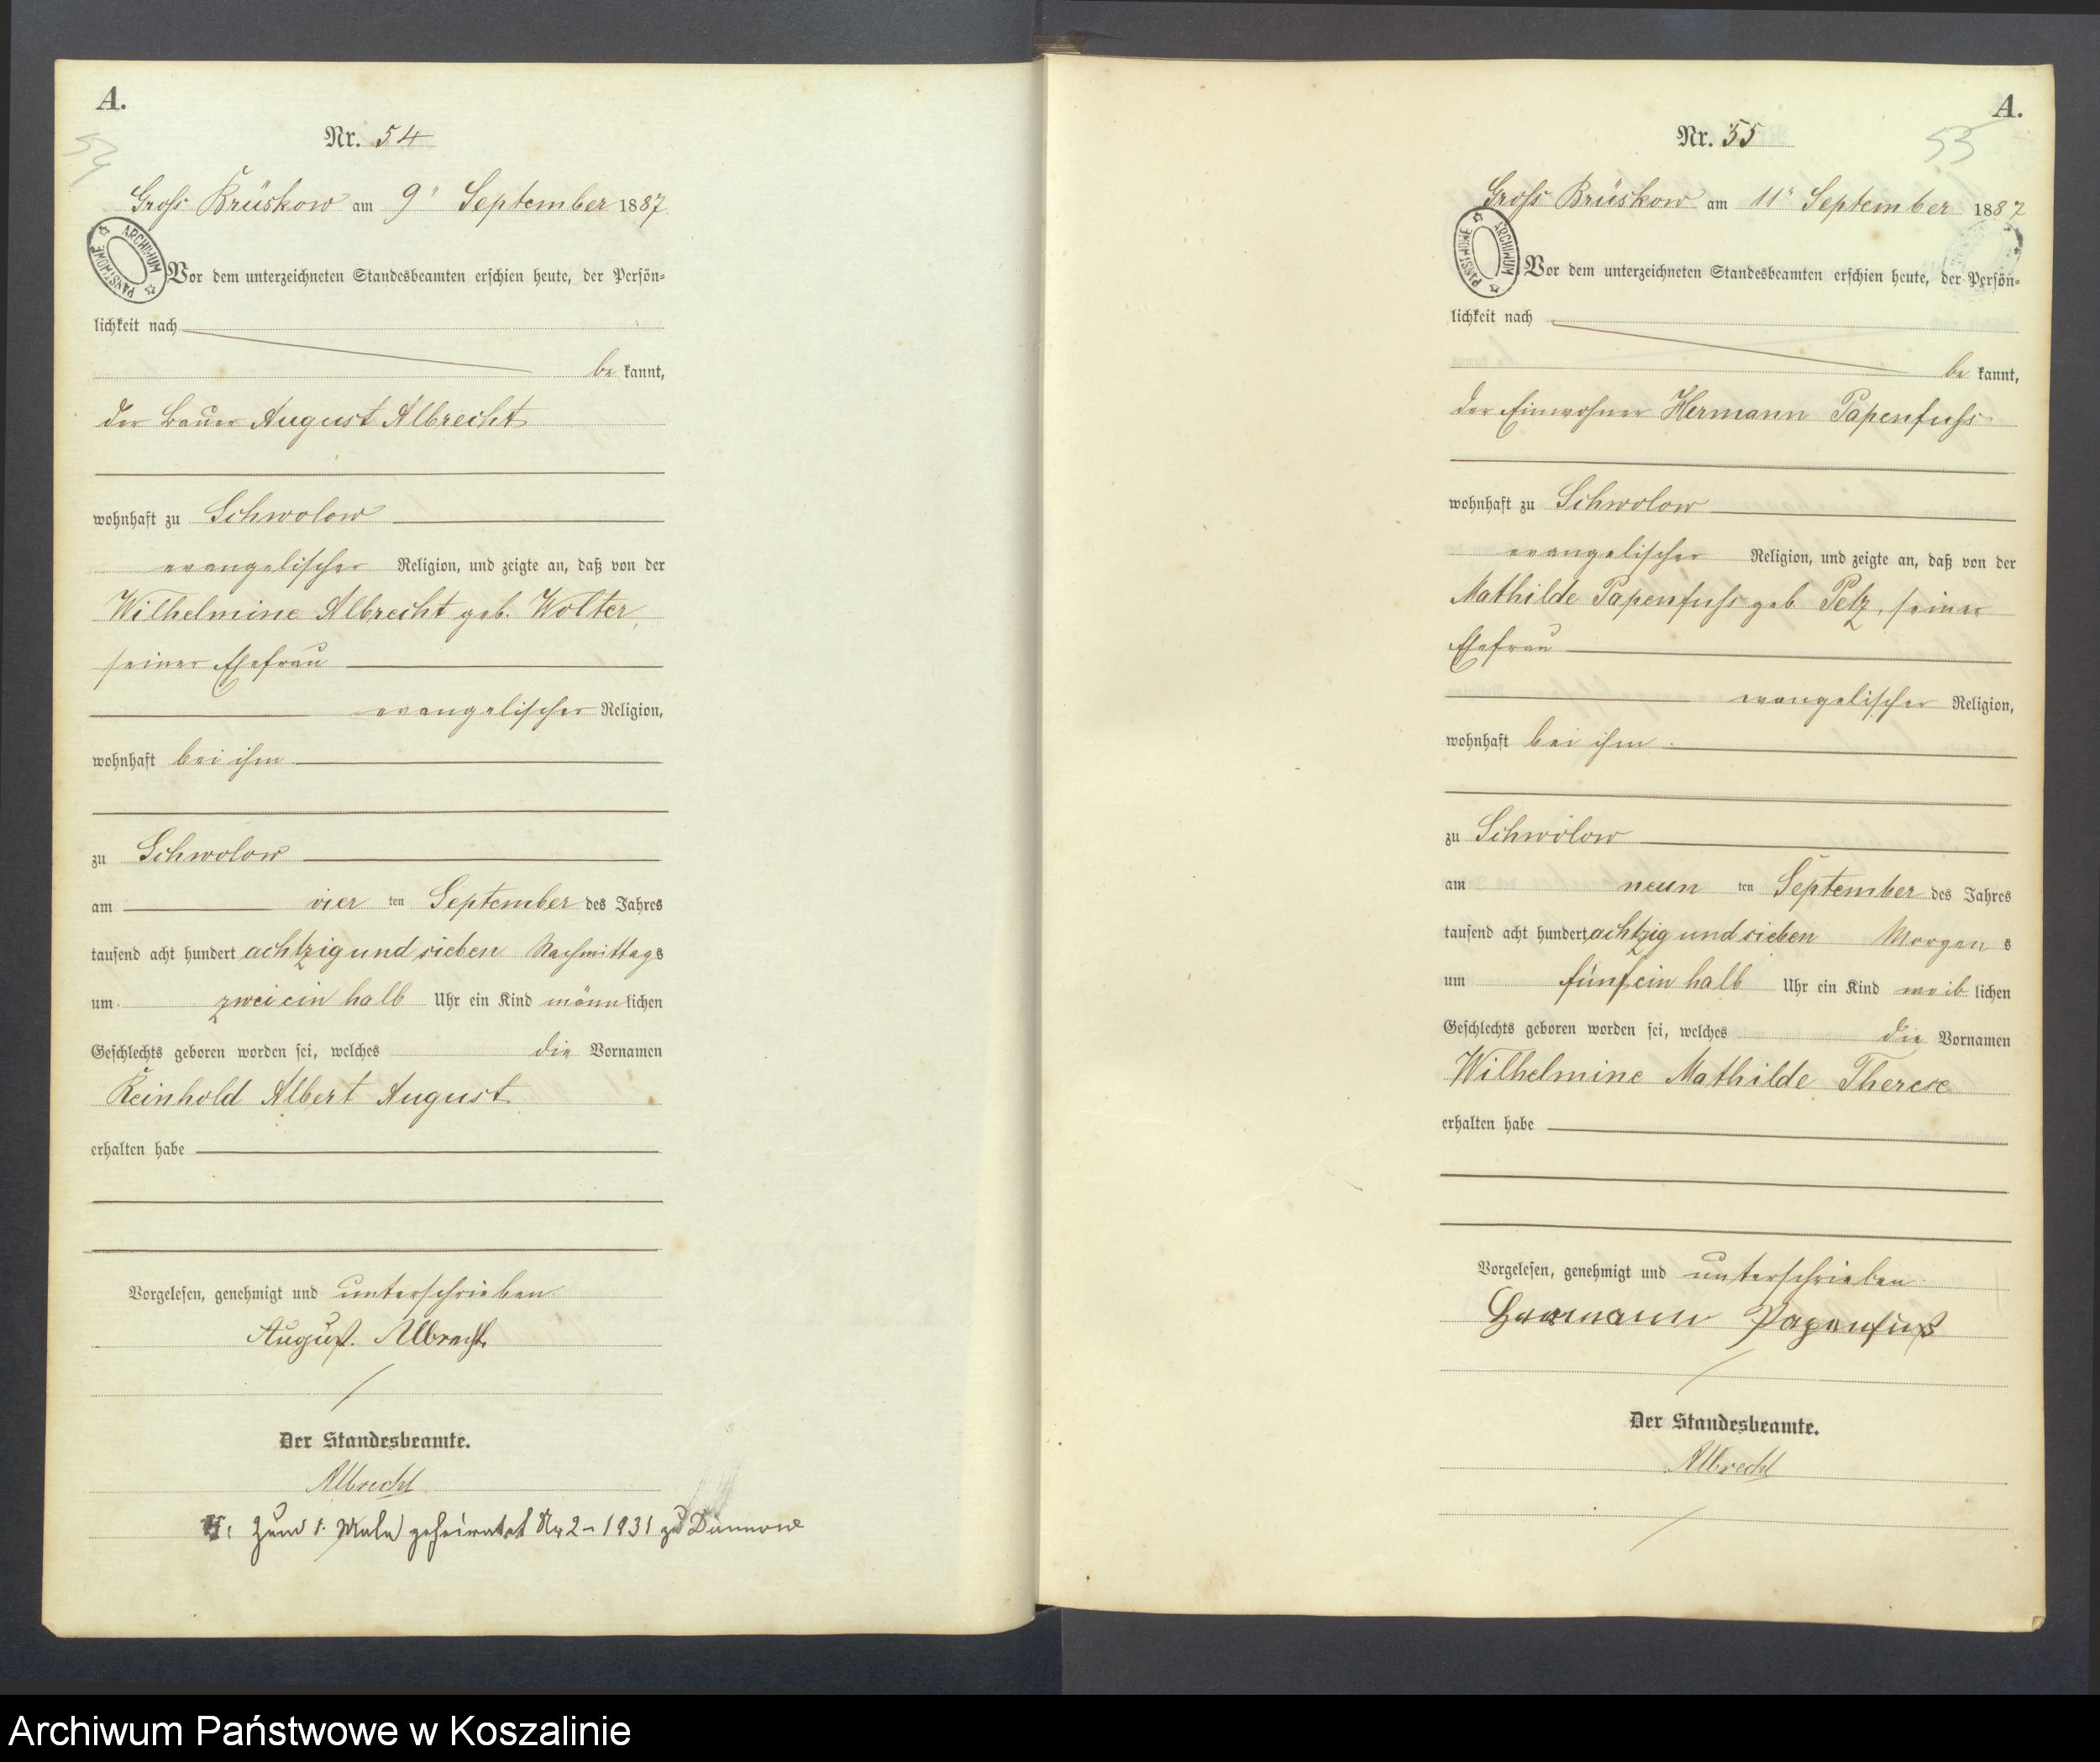 A.
54
Nr. 54
Gross Brüskow am 9ᵗ September 1887
ARCHIWUM PAŃSTWOWE
Vor dem unterzeichneten Standesbeamten erschien heute, der Persön=
lichkeit nach
be kannt,
der Bauer August Albrecht
wohnhaft zu Schwolow
evangelischer Religion, und zeigte an, daß von der
Wilhelmine Albrecht geb. Wolter,
seiner Ehefrau
evangelischer Religion,
wohnhaft bei ihm
zu Schwolow
am vier ten September des Jahres
tausend acht hundert achtzig und sieben Nachmittags
um zwei ein halb Uhr ein Kind männlichen
Geschlechts geboren worden sei, welches die Vornamen
Reinhold Albert August
erhalten habe
Vorgelesen, genehmigt und unterschrieben
August Albrecht
Der Standesbeamte.
Albrecht
Zum 1. Male geheiratet Nr 2 - 1931 zu Dünnow
A.
55
Nr. 55
Gross Brüskow am 11ᵗ September 1887
ARCHIWUM PAŃSTWOWE
Vor dem unterzeichneten Standesbeamten erschien heute, der Persön=
lichkeit nach
be kannt,
der Einwohner Hermann Papenfuss
wohnhaft zu Schwolow
evangelischer Religion, und zeigte an, daß von der
Mathilde Papenfuss geb. Pelz, seiner
Ehefrau
evangelischer Religion,
wohnhaft bei ihm
zu Schwolow
am neun ten September des Jahres
tausend acht hundert achtzig und sieben Morgens
um fünf ein halb Uhr ein Kind weiblichen
Geschlechts geboren worden sei, welches die Vornamen
Wilhelmine Mathilde Therese
erhalten habe
Vorgelesen, genehmigt und unterschrieben
Hermann Papenfuß
Der Standesbeamte.
Albrecht
Archiwum Państwowe w Koszalinie